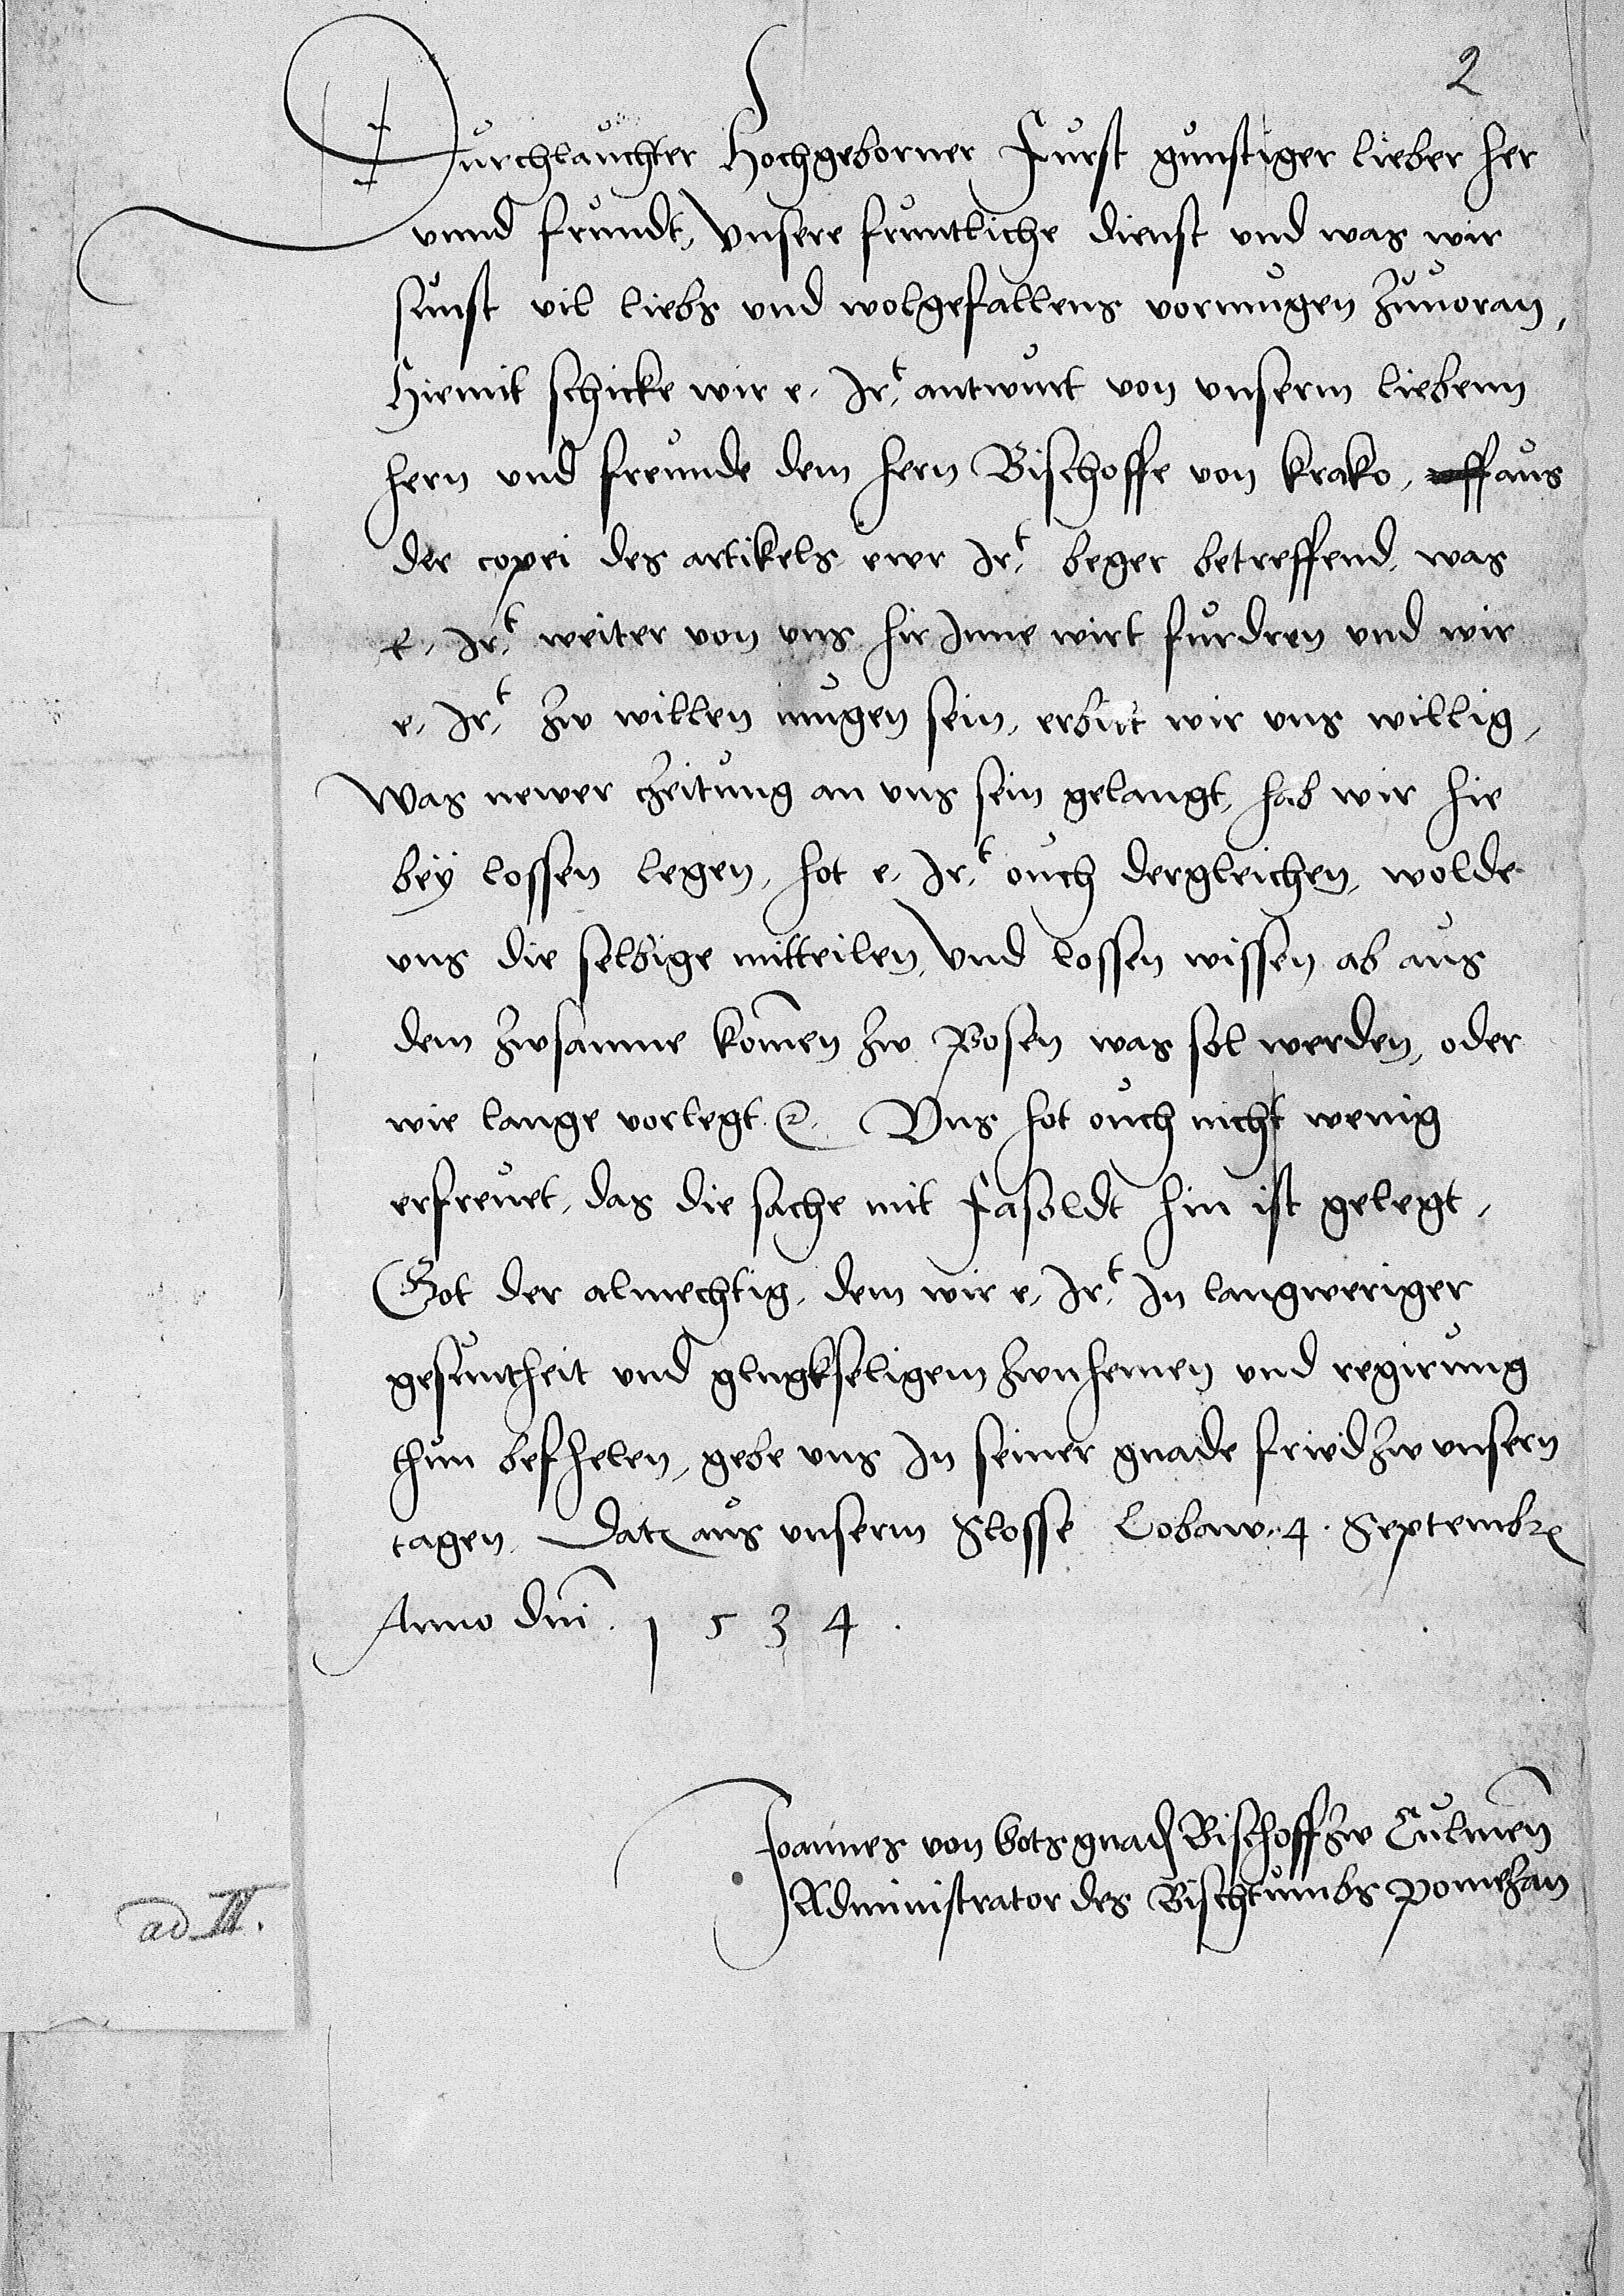 2
Durchlauchter Hochgeborner Furst gunstiger lieber her
unnd frundt, Unsere fruntliche dienst und was wir
sunst vil liebs und wolgefallens vormugen zuuoran,
Hiemit schicke wir e. Irt. antwurt von unserm liebenn
hern und freunde dem hern Bischoffe von krako, aus
der copei des artikels ewr Irt. beger betreffend, was
e. Irt. weiter von uns hir Inne wirt furdren und wir
e. Irt. zw willen mugen sein, erbut wir uns willig,
Was newer zeitung an uns sein gelangt, hab wir hie
bey lossen legen, hot e. Irt. ouch dergleichen, wolde
uns die selbige mitteilen, und lossen wissen ab aus
dem zwsamne komen zw Posen was sol werden, oder
wie lange vorlegt. Uns hot ouch nicht wenig
erfreuet, das die sache mit Fasoldt hin ist gelegt,
Got der almechtig, dem wir e. Irt. In langweriger
gesuntheit und glugkseligem zwnhemen und regirung
thun befhelen, gebe uns In seiner gnade fried zw unsern
tagen. Dat aus unserm Slosse Lobaw. 4. Septembr
Anno dni. 1534.
Joannes von Gots gnad Bischoff zw Culmen
Administrator des Bischtumbs pomezan
ad II.